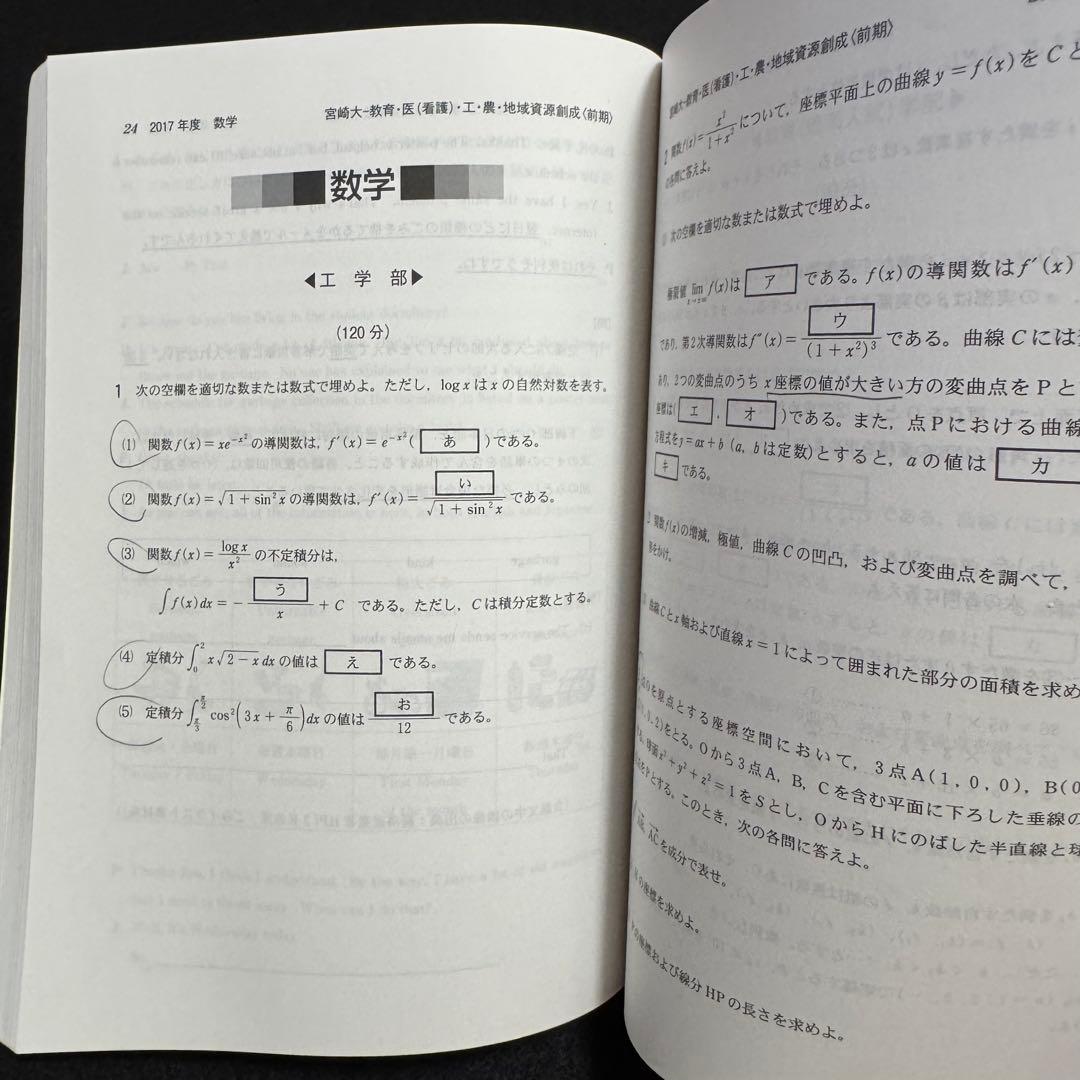 24 2017年度 数学
宮崎大-教育・医(看護)・工・農・地域資源創成〈前期〉
数学
◀工学部▶
(120分)
1 次の空欄を適切な数または数式で埋めよ。ただし，log x は x の自然対数を表す。
(1) 関数 f(x)=xe^{-x^2} の導関数は，f′(x)=e^{-x^2}( あ )である。
(2) 関数 f(x)=√(1+sin²x) の導関数は，f′(x)= い/√(1+sin²x) である。
(3) 関数 f(x)= log x/x² の不定積分は，
∫f(x)dx=− う/x +C である。ただし，C は積分定数とする。
(4) 定積分 ∫_0^2 x√(2−x) dx の値は え である。
(5) 定積分 ∫_{π/3}^{π/2} cos²(3x+π/6)dx の値は お/12 である。
宮崎大-教育・医(看護)・工・農・地域資源創成〈前期〉
2 関数 f(x)= x²/(1+x²) について，座標平面上の曲線 y=f(x) を C と
の各問に答えよ。
次の空欄を適切な数または数式で埋めよ。
極限値 lim f(x) は ア である。f(x) の導関数は f′(x)
であり，第2次導関数は f″(x)= ウ/(1+x²)³ である。曲線 C には
あり，2つの変曲点のうち x 座標の値が大きい方の変曲点を P と
座標は( エ ， オ )である。また，点 P における曲線
方程式を y=ax+b (a, b は定数)とすると，a の値は カ
キ である。
関数 f(x) の増減，極値，曲線 C の凹凸，および変曲点を調べて，
形をかけ。
曲線 C と x 軸および直線 x=1 によって囲まれた部分の面積を求め
を原点とする座標空間において，3点 A(1, 0, 0)，B(0
0, 2)をとる。O から3点 A，B，C を含む平面に下ろした垂線の
球面 x²+y²+z²=1 を S とし，O から H にのばした半直線と球
を P とする。このとき，次の各問に答えよ。
AC を成分で表せ。
の座標を求めよ。
の座標および線分 HP の長さを求めよ。